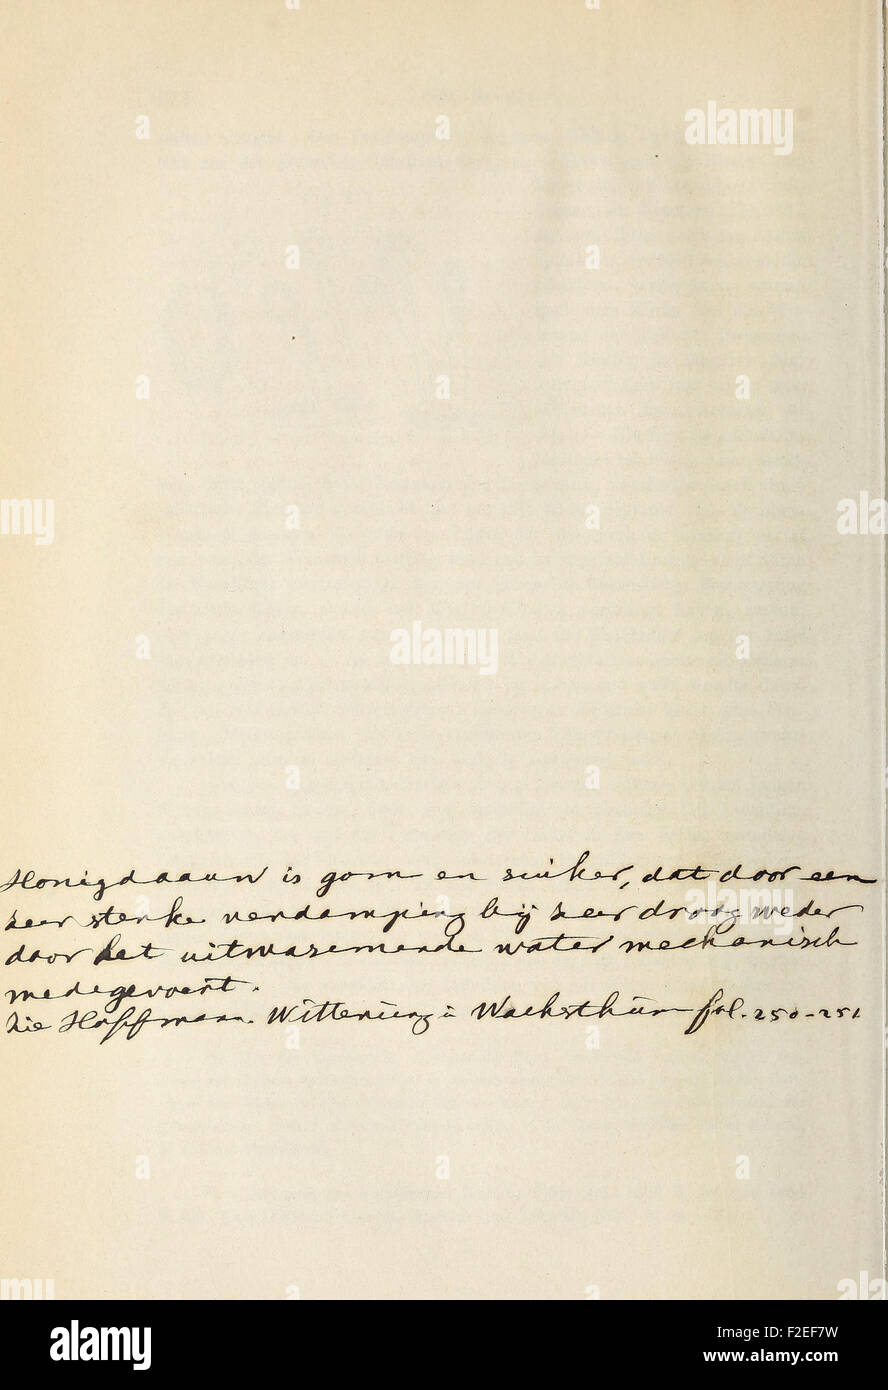 Honigdaauw is gom en suiker, dat door een
zeer sterke verdamping bij zeer droog weder
door het uitwasemende water mechanisch
medegevoert.
Zie Hoffman. Witterung u Wachsthum fol. 250-251
a alamy stock photo
F2EF7W
www.alamy.com